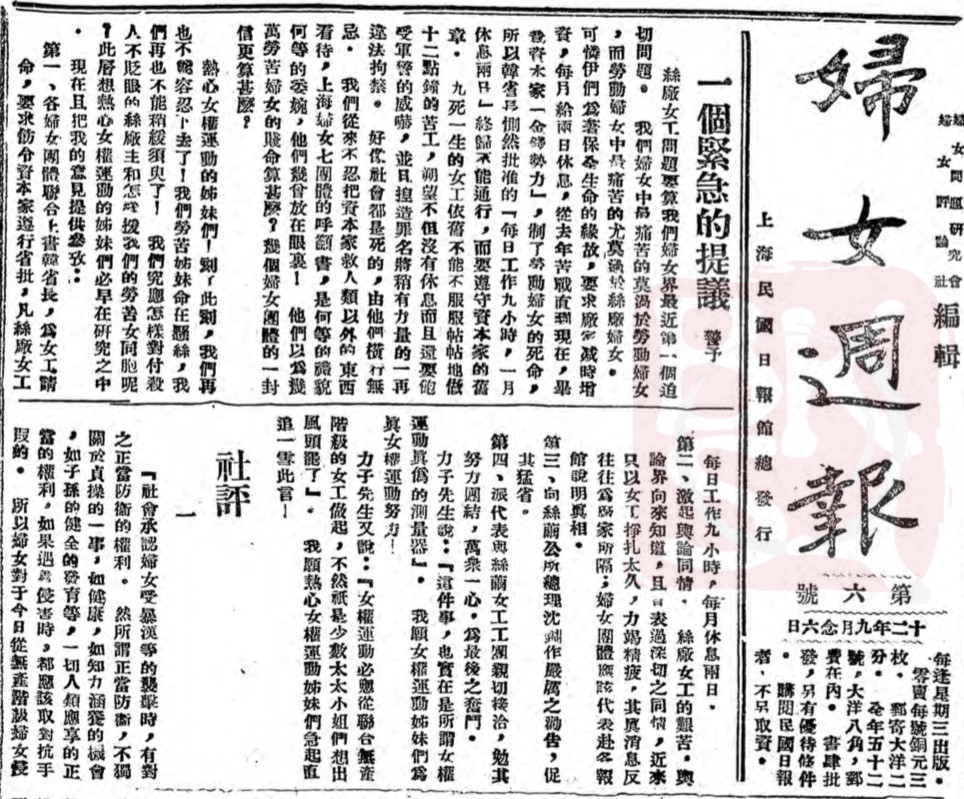 婦女問題研究會
婦女評論社
編輯
婦女週報
上海民國日報館總發行
第六號
十二年九月念六日
每逢星期三出版。
零賣每號銅元三
枚。郵寄大洋二
分。全年五十二
號,大洋八角,郵
費在內。書肆批
發,另有優待條件
。購閱民國日報
者,不另取資。
一個緊急的提議
警予
絲廠女工問題要算我們婦女界最近第一個迫
切問題。我們婦女中最痛苦的莫過於勞動婦女
,而勞動婦女中最痛苦的尤莫過於絲廠婦女。
可憐伊們為著保全生命的緣故,要求廠家減時增
資,每月給兩日休息,從去年苦戰直到現在,畢
竟資本家「金錢勢力」,制了勞動婦女的死命,
所以韓省長惻然批准的「每日工作九小時,一月
休息兩日」終歸不能通行,而要遵守資本家的舊
章。九死一生的女工依舊不能不服服帖帖地做
十二點鐘的苦工,朔望不但沒有休息而且還要飽
受軍警的威嚇,並且捏造罪名將稍有力量的一再
違法拘禁。好像社會都是死的,由他們橫行無
忌。我們從來不忍把資本家救人類以外的東西
看待,上海婦女七團體的呼籲書,是何等的禮貌
何等的委婉,他們幾曾放在眼裏!他們以為幾
萬勞苦婦女的賤命算甚麼?幾個婦女團體的一封
信更算甚麼?
熱心女權運動的姊妹們!到了此刻,我們再
也不能容忍下去了!我們勞苦姊妹命在懸絲,我
們再也不能稍緩須臾了!我們究應怎樣對付殺
人不眨眼的絲廠主和怎樣援我們的勞苦女同胞呢
?此層想熱心女權運動的姊妹們必早在研究之中
。現在且把我的意見提供參攷:
第一、各婦女團體聯合上書韓省長,為女工請
命,要求飭令資本家遵行省批,凡絲廠女工
每日工作九小時,每月休息兩日。
第二、激起輿論同情。絲廠女工的艱苦,輿
論界向來知道,且曾表過深切之同情,近來
只以女工掙扎太久,力竭精疲,其真消息反
往往為廠家所隔;婦女團體應該代表赴各報
館說明真相。
第三、向絲繭公所總理沈潤作嚴厲之勸告,促
其猛省。
第四、派代表與絲繭女工工團親切接洽,勉其
努力團結,萬衆一心,為最後之奮鬥。
力子先生說:『這件事,也實在是所謂女權
運動真偽的測量器』。我願女權運動姊妹們為
真女權運動努力!
力子先生又說:『女權運動必應從聯合無產
階級的女工做起,不然祇是少數太太小姐們想出
風頭罷了』。我願熱心女權運動姊妹們急起直
追一雪此言!
社評
一
『社會承認婦女受暴漢等的襲擊時,有對
之正當防衛的權利。然所謂正當防衛,不獨
關於貞操的一事,如健康,如知力涵養的機會
,如子孫的健全的發育等,一切人類應享的正
當的權利,如果遇著侵害時,都應該取對抗手
段的。所以婦女對于今日從無產階級婦女侵